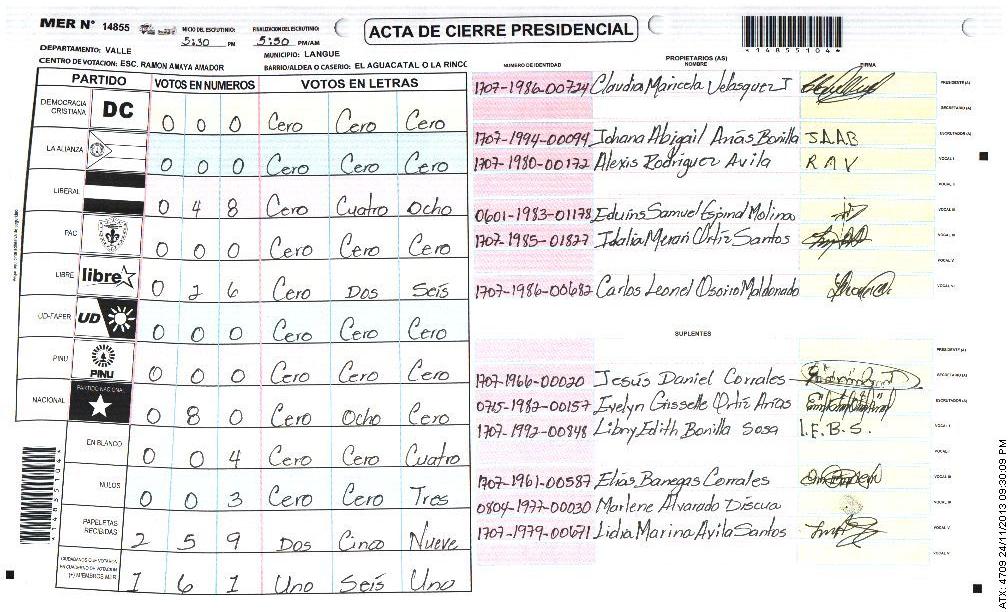 MER N° 14855
INICIO DEL ESCRUTINIO: 5:30 PM
FINALIZACION DEL ESCRUTINIO: 5:50 PM/AM
ACTA DE CIERRE PRESIDENCIAL
*1485510 4*
DEPARTAMENTO: VALLE
MUNICIPIO: LANGUE
CENTRO DE VOTACION: ESC. RAMON AMAYA AMADOR
BARRIO/ALDEA O CASERIO: EL AGUACATAL O LA RINCO
PARTIDO VOTOS EN NUMEROS VOTOS EN LETRAS
DEMOCRACIA CRISTIANA DC 0 0 0 Cero Cero Cero
LA ALIANZA 0 0 0 Cero Cero Cero
LIBERAL 0 4 8 Cero Cuatro Ocho
PAC 0 0 0 Cero Cero Cero
LIBRE libre 0 2 6 Cero Dos Seis
UD-FAPER UD 0 0 0 Cero Cero Cero
PINU PINU 0 0 0 Cero Cero Cero
NACIONAL PARTIDO NACIONAL 0 8 0 Cero Ocho Cero
EN BLANCO 0 0 4 Cero Cero Cuatro
NULOS 0 0 3 Cero Cero Tres
PAPELETAS RECIBIDAS 2 5 9 Dos Cinco Nueve
CIUDADANOS QUE VOTARON EN CUADERNO DE VOTACION (+) MIEMBROS MER 1 6 1 Uno Seis Uno
PROPIETARIOS (AS)
NUMERO DE IDENTIDAD NOMBRE FIRMA
1707-1986-00724 Claudia Maricela Velasquez J PRESIDENTE (A)
SECRETARIO (A)
1707-1994-00094 Johana Abigail Arias Bonilla J.A.A.B ESCRUTADOR (A)
1707-1980-00172 Alexis Rodriguez Avila R A V VOCAL I
VOCAL II
0601-1983-01178 Eduins Samuel Espinal Molina VOCAL III
1707-1985-01827 Idalia Merari Ortiz Santos VOCAL IV
VOCAL V
1707-1986-00682 Carlos Leonel Osoiro Maldonado VOCAL VI
SUPLENTES
PRESIDENTE (A)
1707-1966-00020 Jesús Daniel Corrales SECRETARIO (A)
0715-1982-00157 Evelyn Gisselle Ortiz Arias ESCRUTADOR (A)
1707-1992-00848 Libny Edith Bonilla Sosa I.F.B.S. VOCAL I
1707-1961-00587 Elias Banegas Corrales VOCAL III
0804-1977-00030 Marlene Alvarado Discua
1707-1979-00671 Lidia Marina Avila Santos VOCAL V
ATX: 4709 24/11/2013 09:30:09 PM